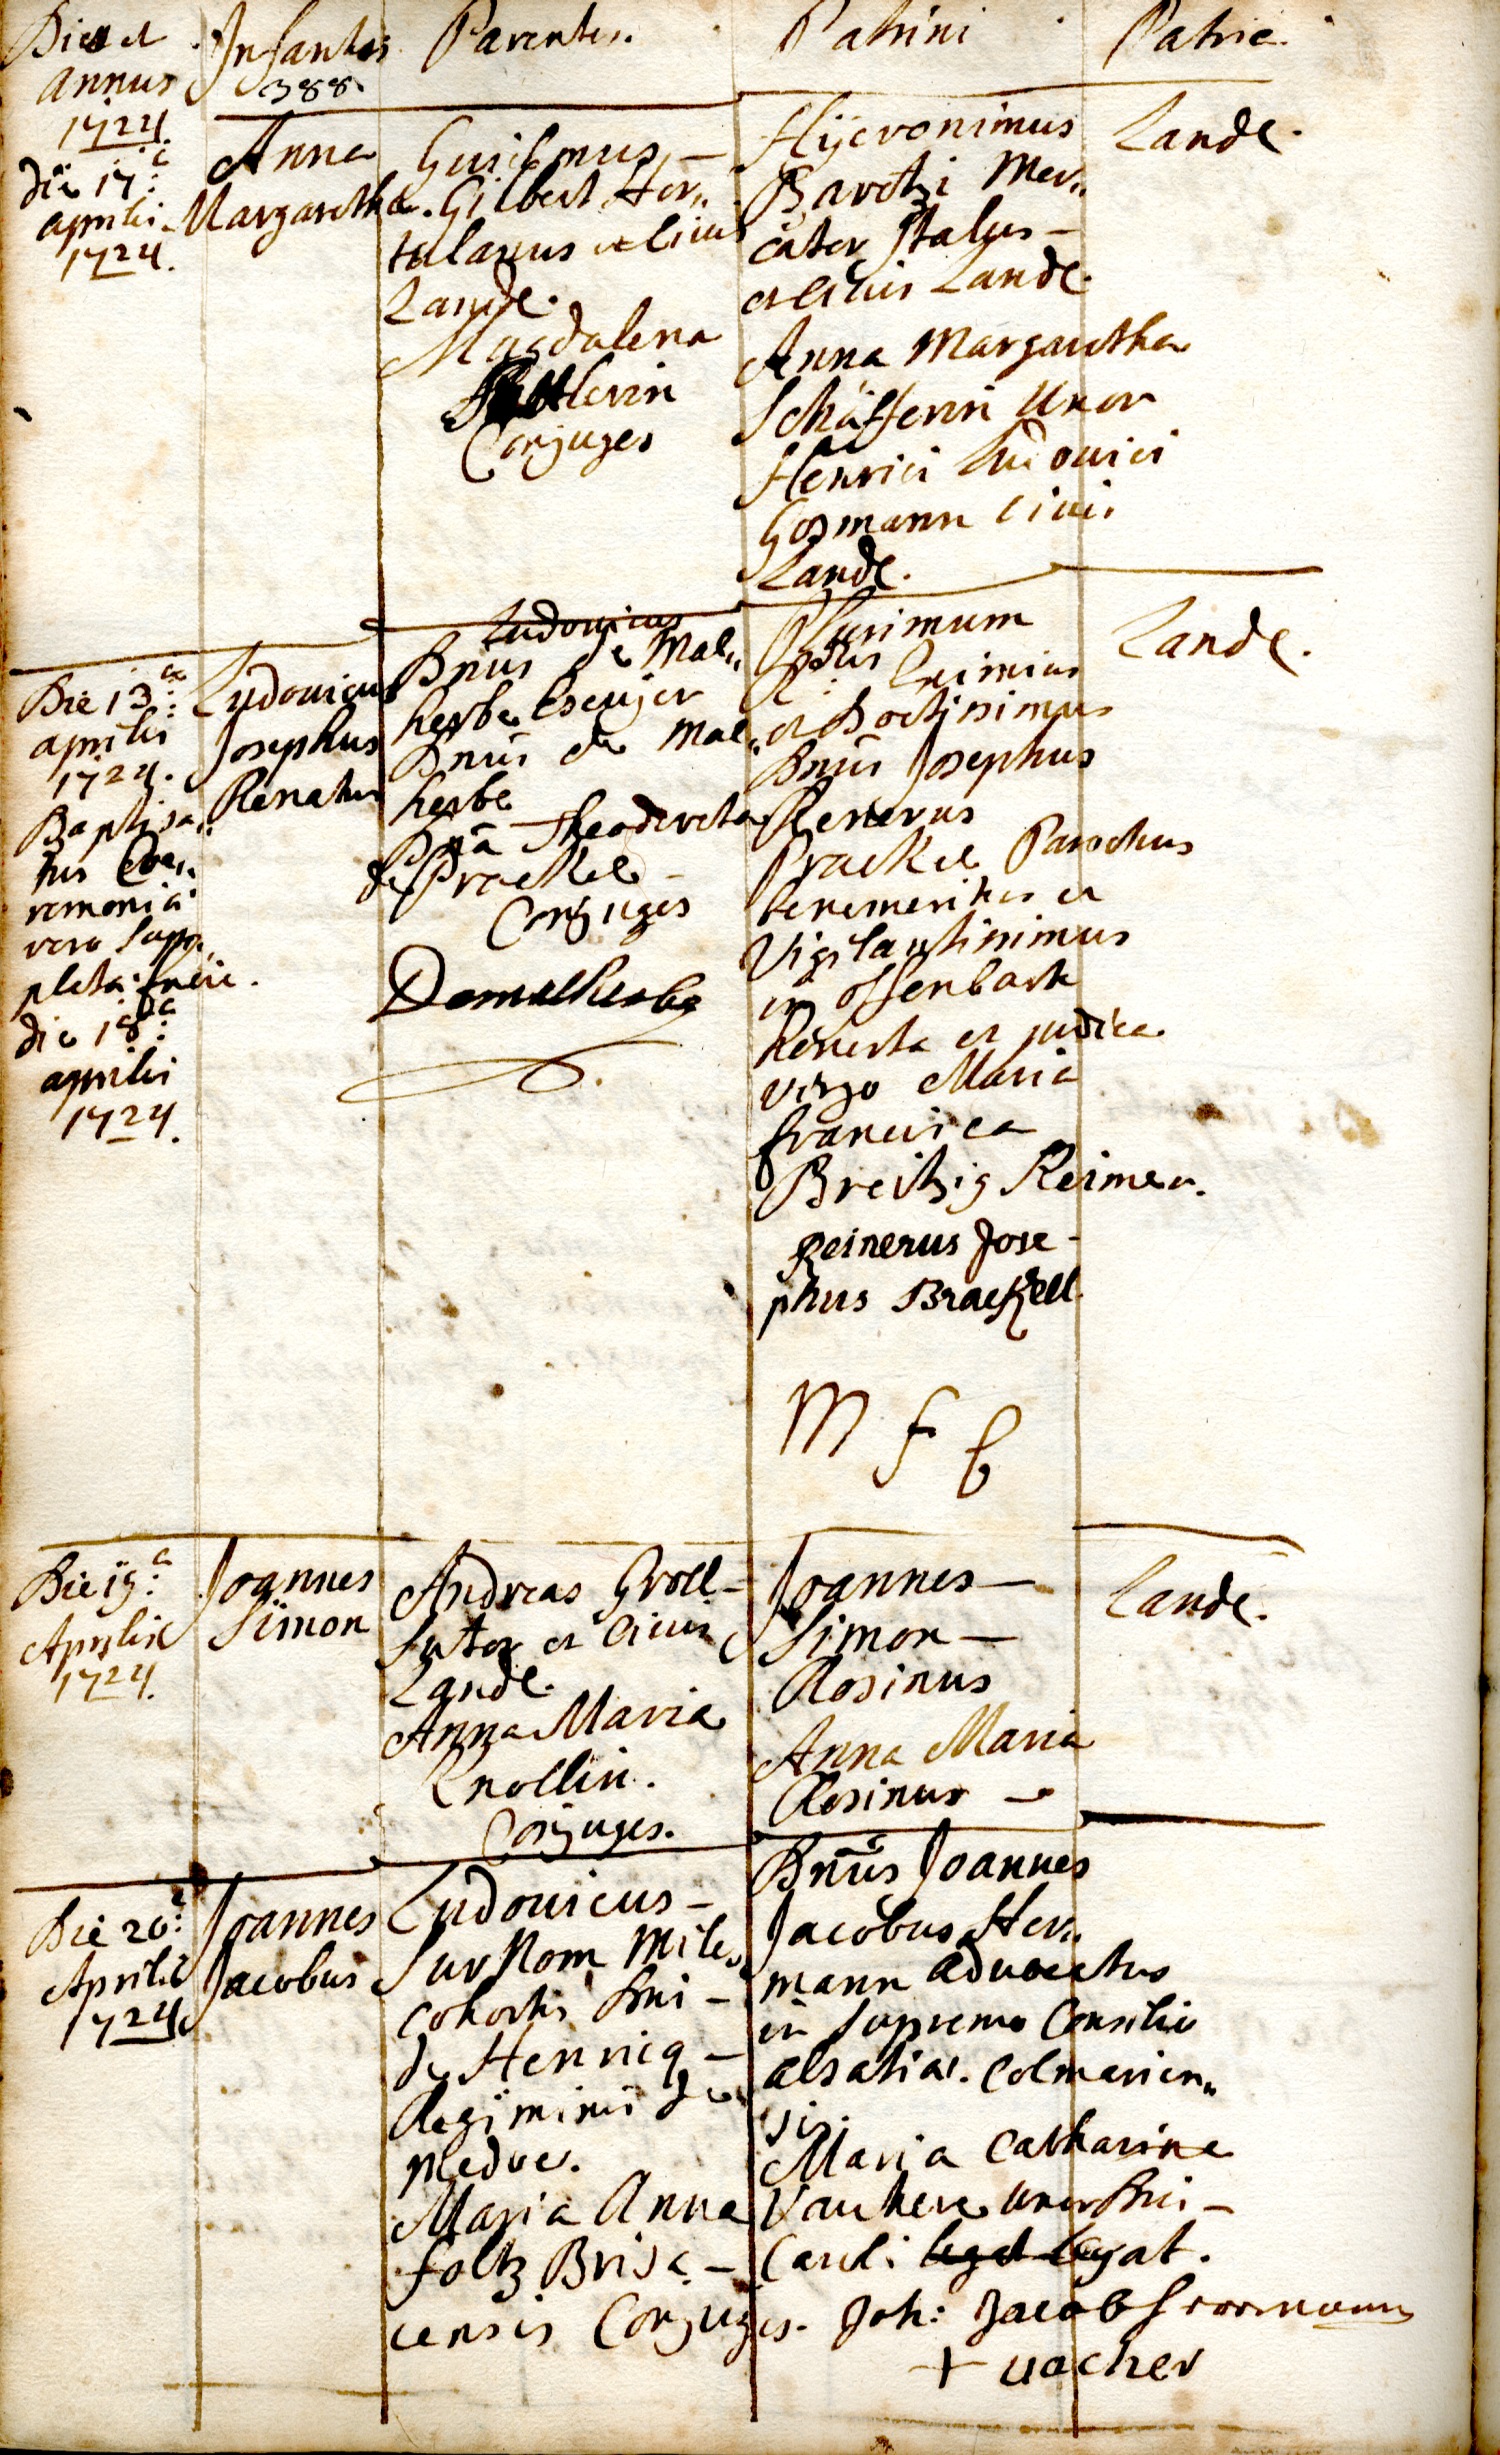 Die et
annus
1724.
Infantes
388.
Parentes.
Patrini
Patria.
die 17.a
aprilis
1724.
Anna
Margaretha.
Guilemus –
Gilbert Hor„
tulanus et civis
Landæ.
Magdalena
Conjuges
Hÿeronimus
Barotzi Mer„
cator Italus –
et civis Landæ.
Anna Margaretha
Schäfferin Uxor
Henrici Ludovici
Gosmann civis
Landæ.
Landæ.
Die 13.a
aprilis
1724.
Baptisa„
tus Cæ„
remonia
vero sup„
pleta fuere.
die 18.a
aprilis
1724.
Ludovicus
Josephus
Renatus
Ludovicus
Dnus de Mal„
herbe Escujer
Dnus de Mal„
herbe
Dna Theodoreta
de Prackel –
Conjuges
Demalherbe
Plurimum
Rdus Eximius
et Doctissimus
Dnus Josephus
Renerus
Prackel Parochus
benemeritus et
Vigilantissimus
in Offenbach
honesta et pudica
virgo Maria
francisca
Breitzig Reimer.
Reinerus Jose-
phus Brackell
M f b
Landæ.
Die 19.a
Aprilis
1724.
Joannes
Simon
Andreas Groll –
Sutor et Civis
Landæ.
Anna Maria
Knollin.
Conjuges.
Joannes –
Simon –
Rosinus
Anna Maria
Rosinus –
Landæ.
Die 20.a
Aprilis
1724.
Joannes
Jacobus
Ludovicus –
Sur Nom Mile„
cohortis Dni –
de Hennicq –
Regiminis de
Medve.
Maria Anna
foltz Brisa –
censis Conjuges.
Dnus Joannes
Jacobus Her„
mann advocatus
in Supremo Consilio
alsatiæ. Colmarien„
sis.
Maria Catharina
Vachere Uxor Dni –
Caroli legat legat.
Joh: Jacob Herrmann
+ vacher